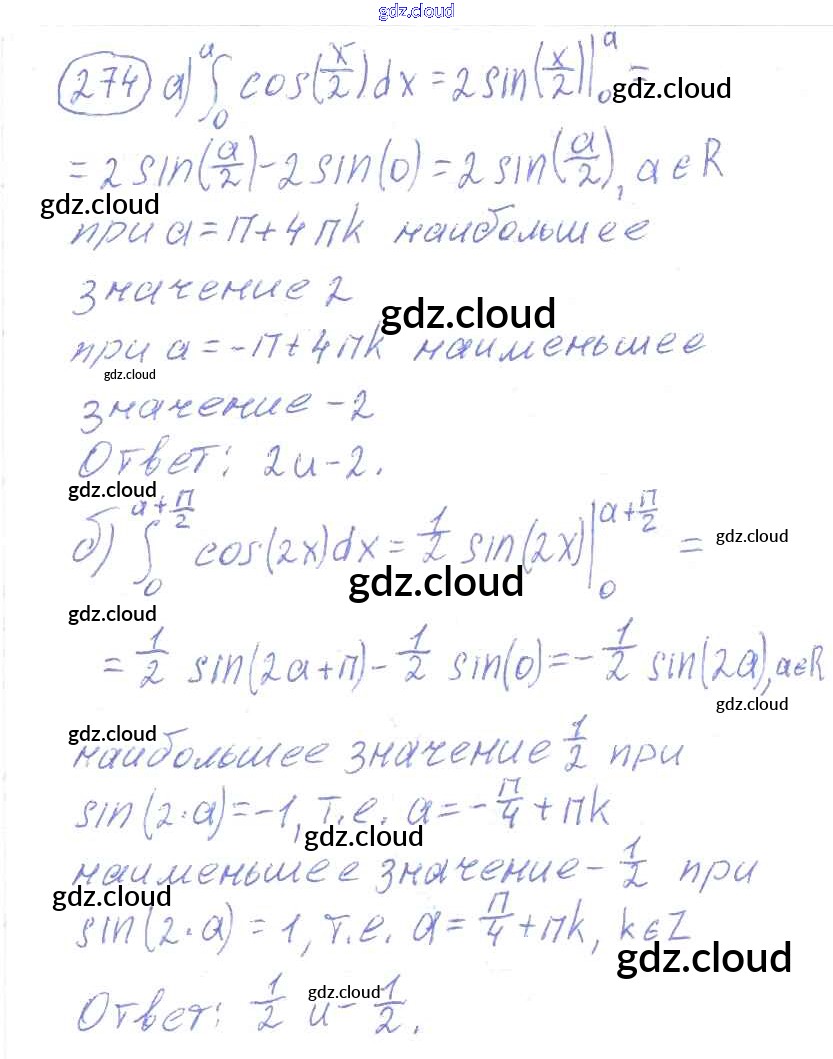 gdz.cloud
274 а) ∫₀ᵃ cos(x/2)dx = 2 sin(x/2)|₀ᵃ =
gdz.cloud
= 2 sin(a/2) - 2 sin(0) = 2 sin(a/2), a ∈ R
gdz.cloud
при a = П + 4Пk наибольшее
значение 2
gdz.cloud
при a = -П + 4Пk наименьшее
gdz.cloud
значение -2
Ответ: 2 и -2.
gdz.cloud
б) ∫₀^(a+П/2) cos(2x)dx = 1/2 sin(2x)|₀^(a+П/2) =
gdz.cloud
gdz.cloud
gdz.cloud
= 1/2 sin(2a+П) - 1/2 sin(0) = -1/2 sin(2a), a∈R
gdz.cloud
gdz.cloud
наибольшее значение 1/2 при
sin(2·a) = -1, т.е. a = -П/4 + Пk
gdz.cloud
наименьшее значение -1/2 при
gdz.cloud
sin(2·a) = 1, т.е. a = П/4 + Пk, k∈Z
gdz.cloud
gdz.cloud
Ответ: 1/2 и -1/2.